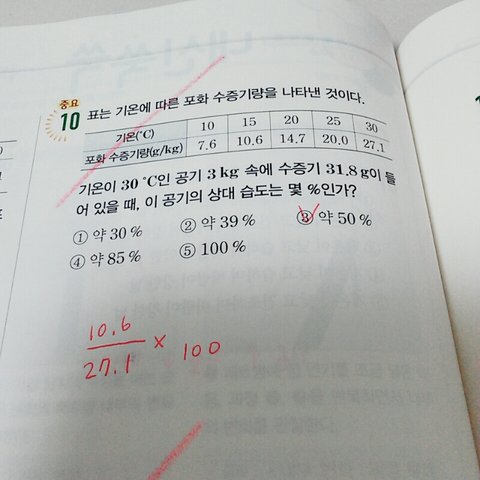 중요
10 표는 기온에 따른 포화 수증기량을 나타낸 것이다.
기온(°C) 10 15 20 25 30
포화 수증기량(g/kg) 7.6 10.6 14.7 20.0 27.1
기온이 30 °C인 공기 3 kg 속에 수증기 31.8 g이 들
어 있을 때, 이 공기의 상대 습도는 몇 %인가?
① 약 30 % ② 약 39 % ③ 약 50 %
④ 약 85 % ⑤ 100 %
10.6
27.1 × 100